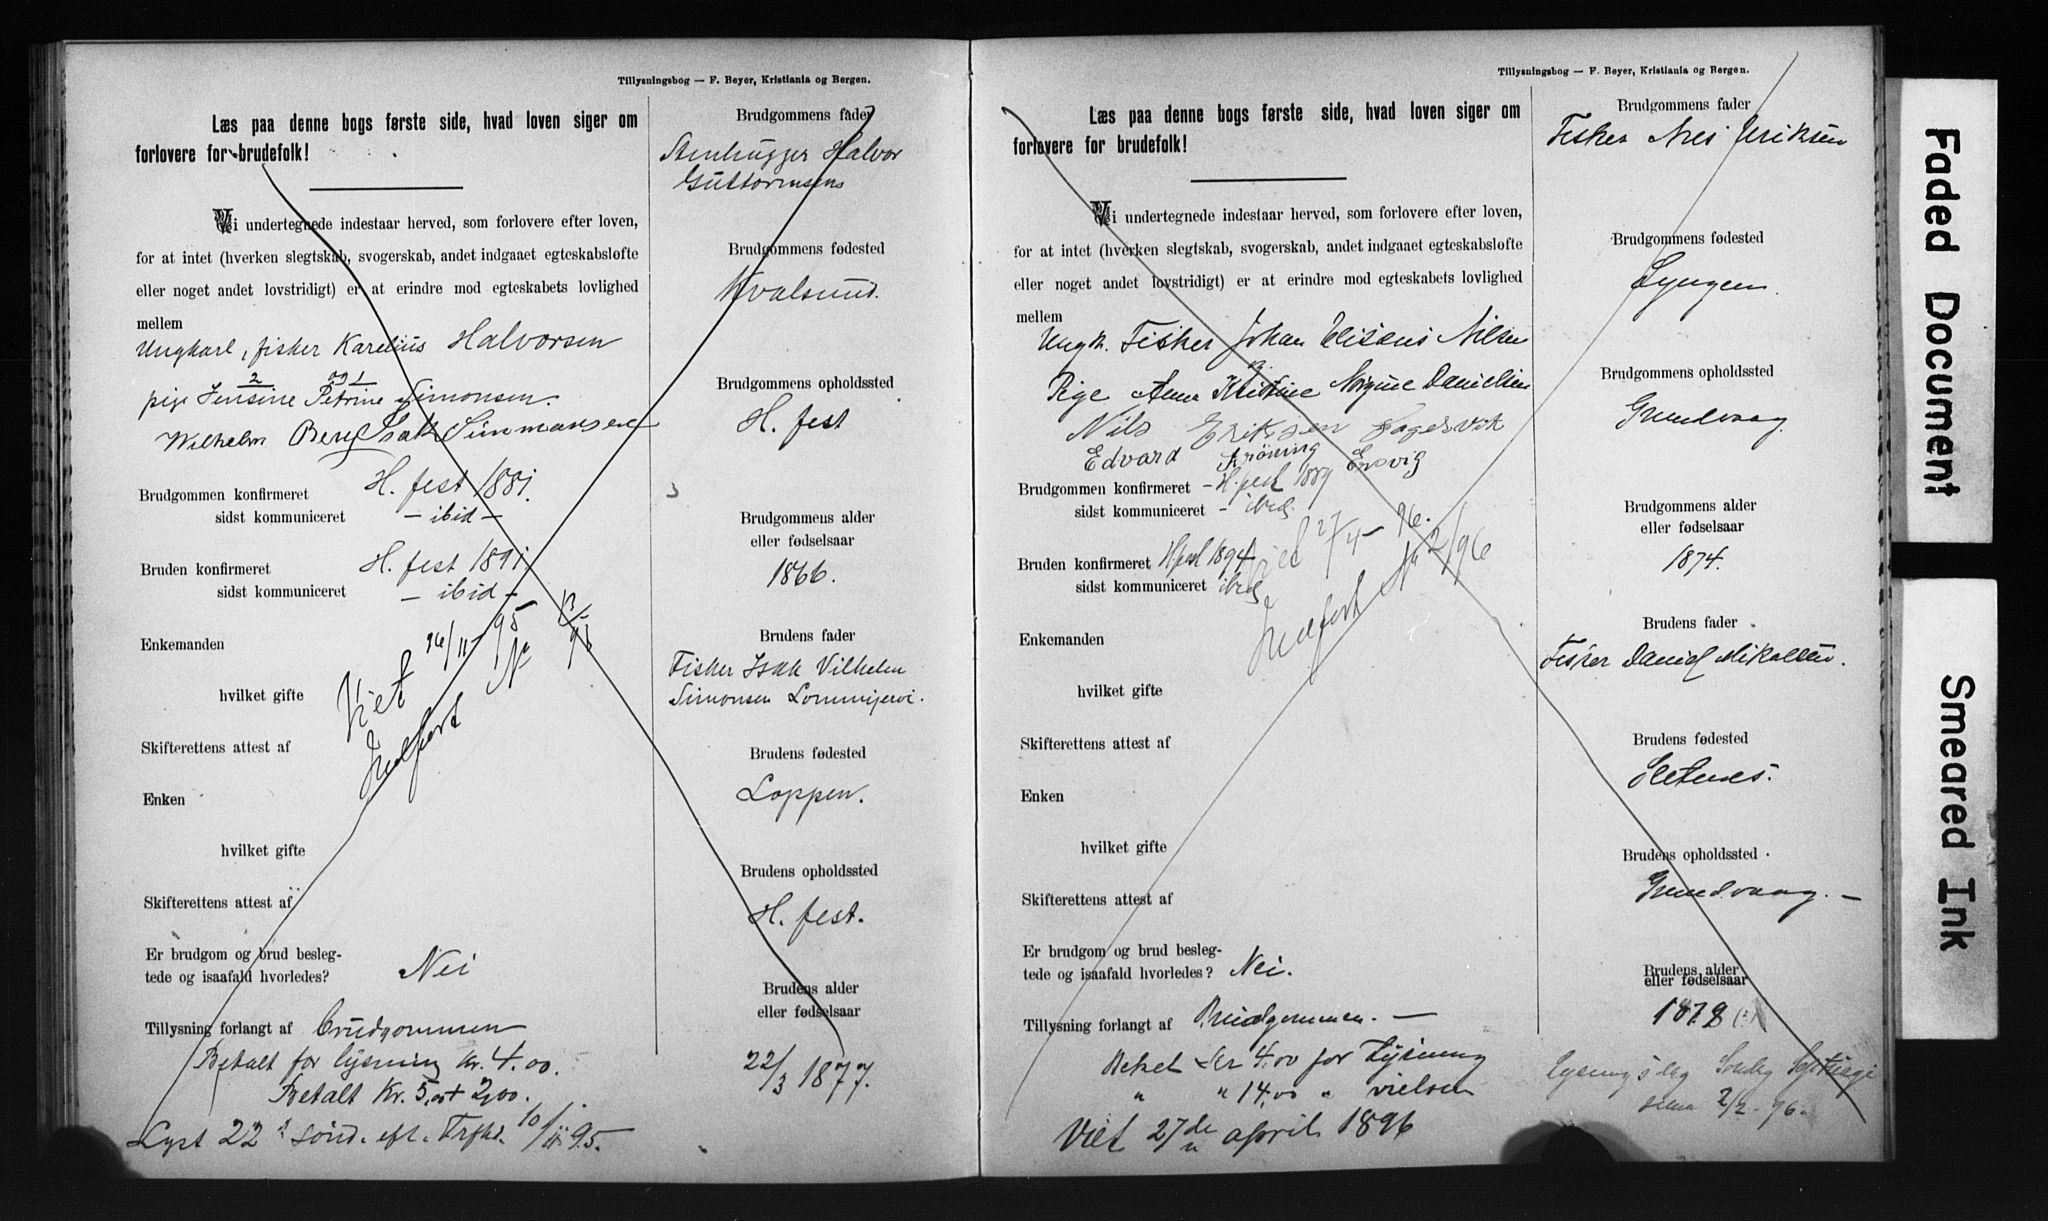 Tillysningsbog — F. Beyer, Kristiania og Bergen.
Læs paa denne bogs første side, hvad loven siger om
forlovere for brudefolk!
Vi undertegnede indestaar herved, som forlovere efter loven,
for at intet (hverken slegtskab, svogerskab, andet indgaaet egteskabsløfte
eller noget andet lovstridigt) er at erindre mod egteskabets lovlighed
mellem
Ungkarl, fisker Karelius Halvorsen
2 og 1
pige Jensine Petrine Simonsen.
Wilhelm Berg Isak Simmonsen
Brudgommen konfirmeret H. fest 1881.
sidst kommuniceret — ibid —
Bruden konfirmeret H. fest 1891.
sidst kommuniceret — ibid —
Enkemanden
hvilket gifte
Viet 26/11 - 95
Indført No 13/95
Skifterettens attest af
Enken
hvilket gifte
Skifterettens attest af
Er brudgom og brud besleg-
tede og isaafald hvorledes? Nei
Tillysning forlangt af Brudgommen
Betalt for lysning Kr. 4.00.
Betalt Kr. 5,00 + 2,00.
Lyst 22 d. sønd. eft. Trfhd. 10/11 95.
Brudgommens fader
Stenhugger Halvor
Guttormsens
Brudgommens fødested
Kvalsund.
Brudgommens opholdssted
H. fest
Brudgommens alder
eller fødselsaar
1866.
Brudens fader
Fisker Isak Vilhelm
Simonsen Lommijervi.
Brudens fødested
Loppen.
Brudens opholdssted
H. fest.
Brudens alder
eller fødselsaar
22/3 1877.
Tillysningsbog — F. Beyer, Kristiania og Bergen.
Læs paa denne bogs første side, hvad loven siger om
forlovere for brudefolk!
Vi undertegnede indestaar herved, som forlovere efter loven,
for at intet (hverken slegtskab, svogerskab, andet indgaaet egteskabsløfte
eller noget andet lovstridigt) er at erindre mod egteskabets lovlighed
mellem
Ungk. Fisker Johan Elisæus Nilsen
Pige Anna Kristine Norgine Danielsen
Nils Eriksen Fagervik
Edvard Krøning Ersvig
Brudgommen konfirmeret — H. fest 1889
sidst kommuniceret — ibid.
Bruden konfirmeret H. fest 1894
sidst kommuniceret ibid.
Viet 27/4 - 96.
Indført No 2/96
Enkemanden
hvilket gifte
Skifterettens attest af
Enken
hvilket gifte
Skifterettens attest af
Er brudgom og brud besleg-
tede og isaafald hvorledes? Nei.
Tillysning forlangt af Brudgommen. —
Betalt Kr 4,00 for Lysning
" " 14,00 " vielsen
Viet 27de april 1896
Brudgommens fader
Fisker Nils Eriksen
Brudgommens fødested
Lyngen.
Brudgommens opholdssted
Grundvaag.
Brudgommens alder
eller fødselsaar
1874.
Brudens fader
Fisker Daniel Mikalsen.
Brudens fødested
Sletnes.
Brudens opholdssted
Grundvaag. —
Brudens alder
eller fødselsaar
1878
Lysningsdag Søndag Septuage
sima 2/2 - 96.
Faded Document
Smeared Ink